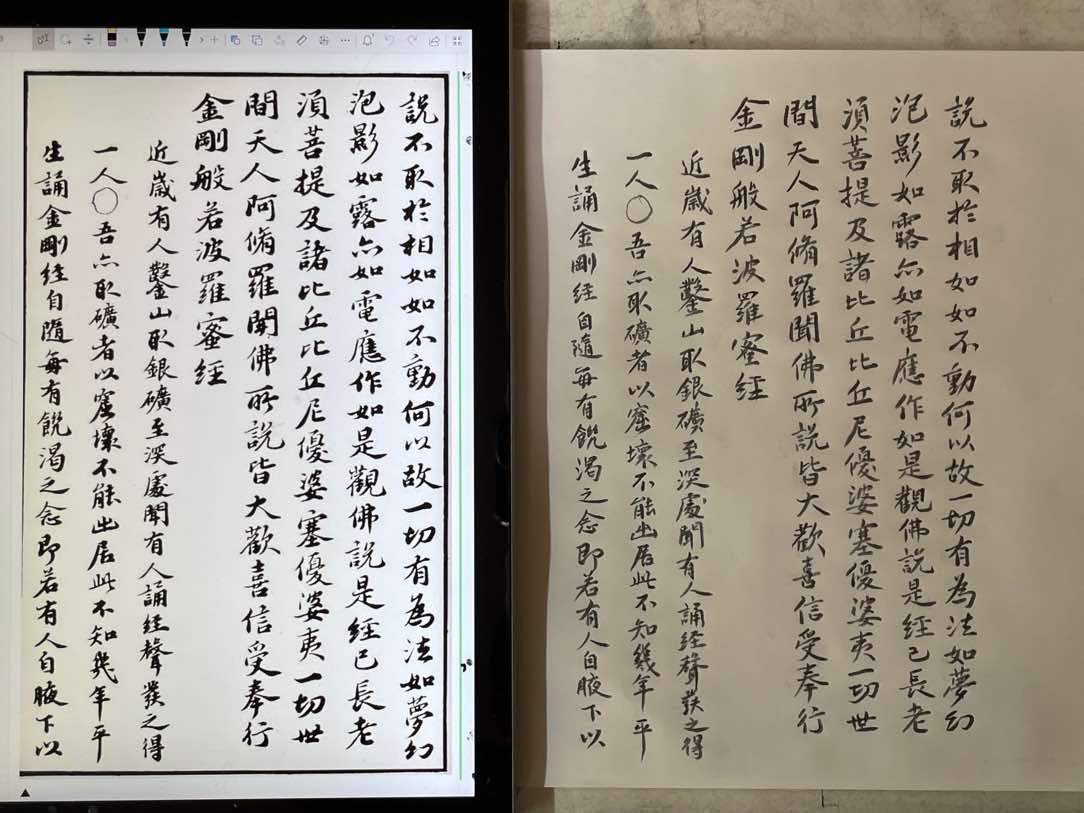 説不取於相如如不動何以故一切有為法如夢幻
泡影如露亦如電應作如是觀佛説是經已長老
湏菩提及諸比丘比丘尼優婆塞優婆夷一切世
間天人阿脩羅聞佛所説皆大歡喜信受奉行
金剛般若波羅蜜經
近歲有人鑿山取銀礦至深處聞有人誦經聲發之得
一人〇吾亦取礦者以窟壞不能出居此不知幾年平
生誦金剛經自隨每有飢渴之念即若有人自腋下以
説不取於相如如不動何以故一切有為法如夢幻
泡影如露亦如電應作如是觀佛説是經已長老
湏菩提及諸比丘比丘尼優婆塞優婆夷一切世
間天人阿脩羅聞佛所説皆大歡喜信受奉行
金剛般若波羅蜜經
近歲有人鑿山取銀礦至深處聞有人誦經聲發之得
一人〇吾亦取礦者以窟壞不能出居此不知幾年平
生誦金剛經自隨每有飢渴之念即若有人自腋下以